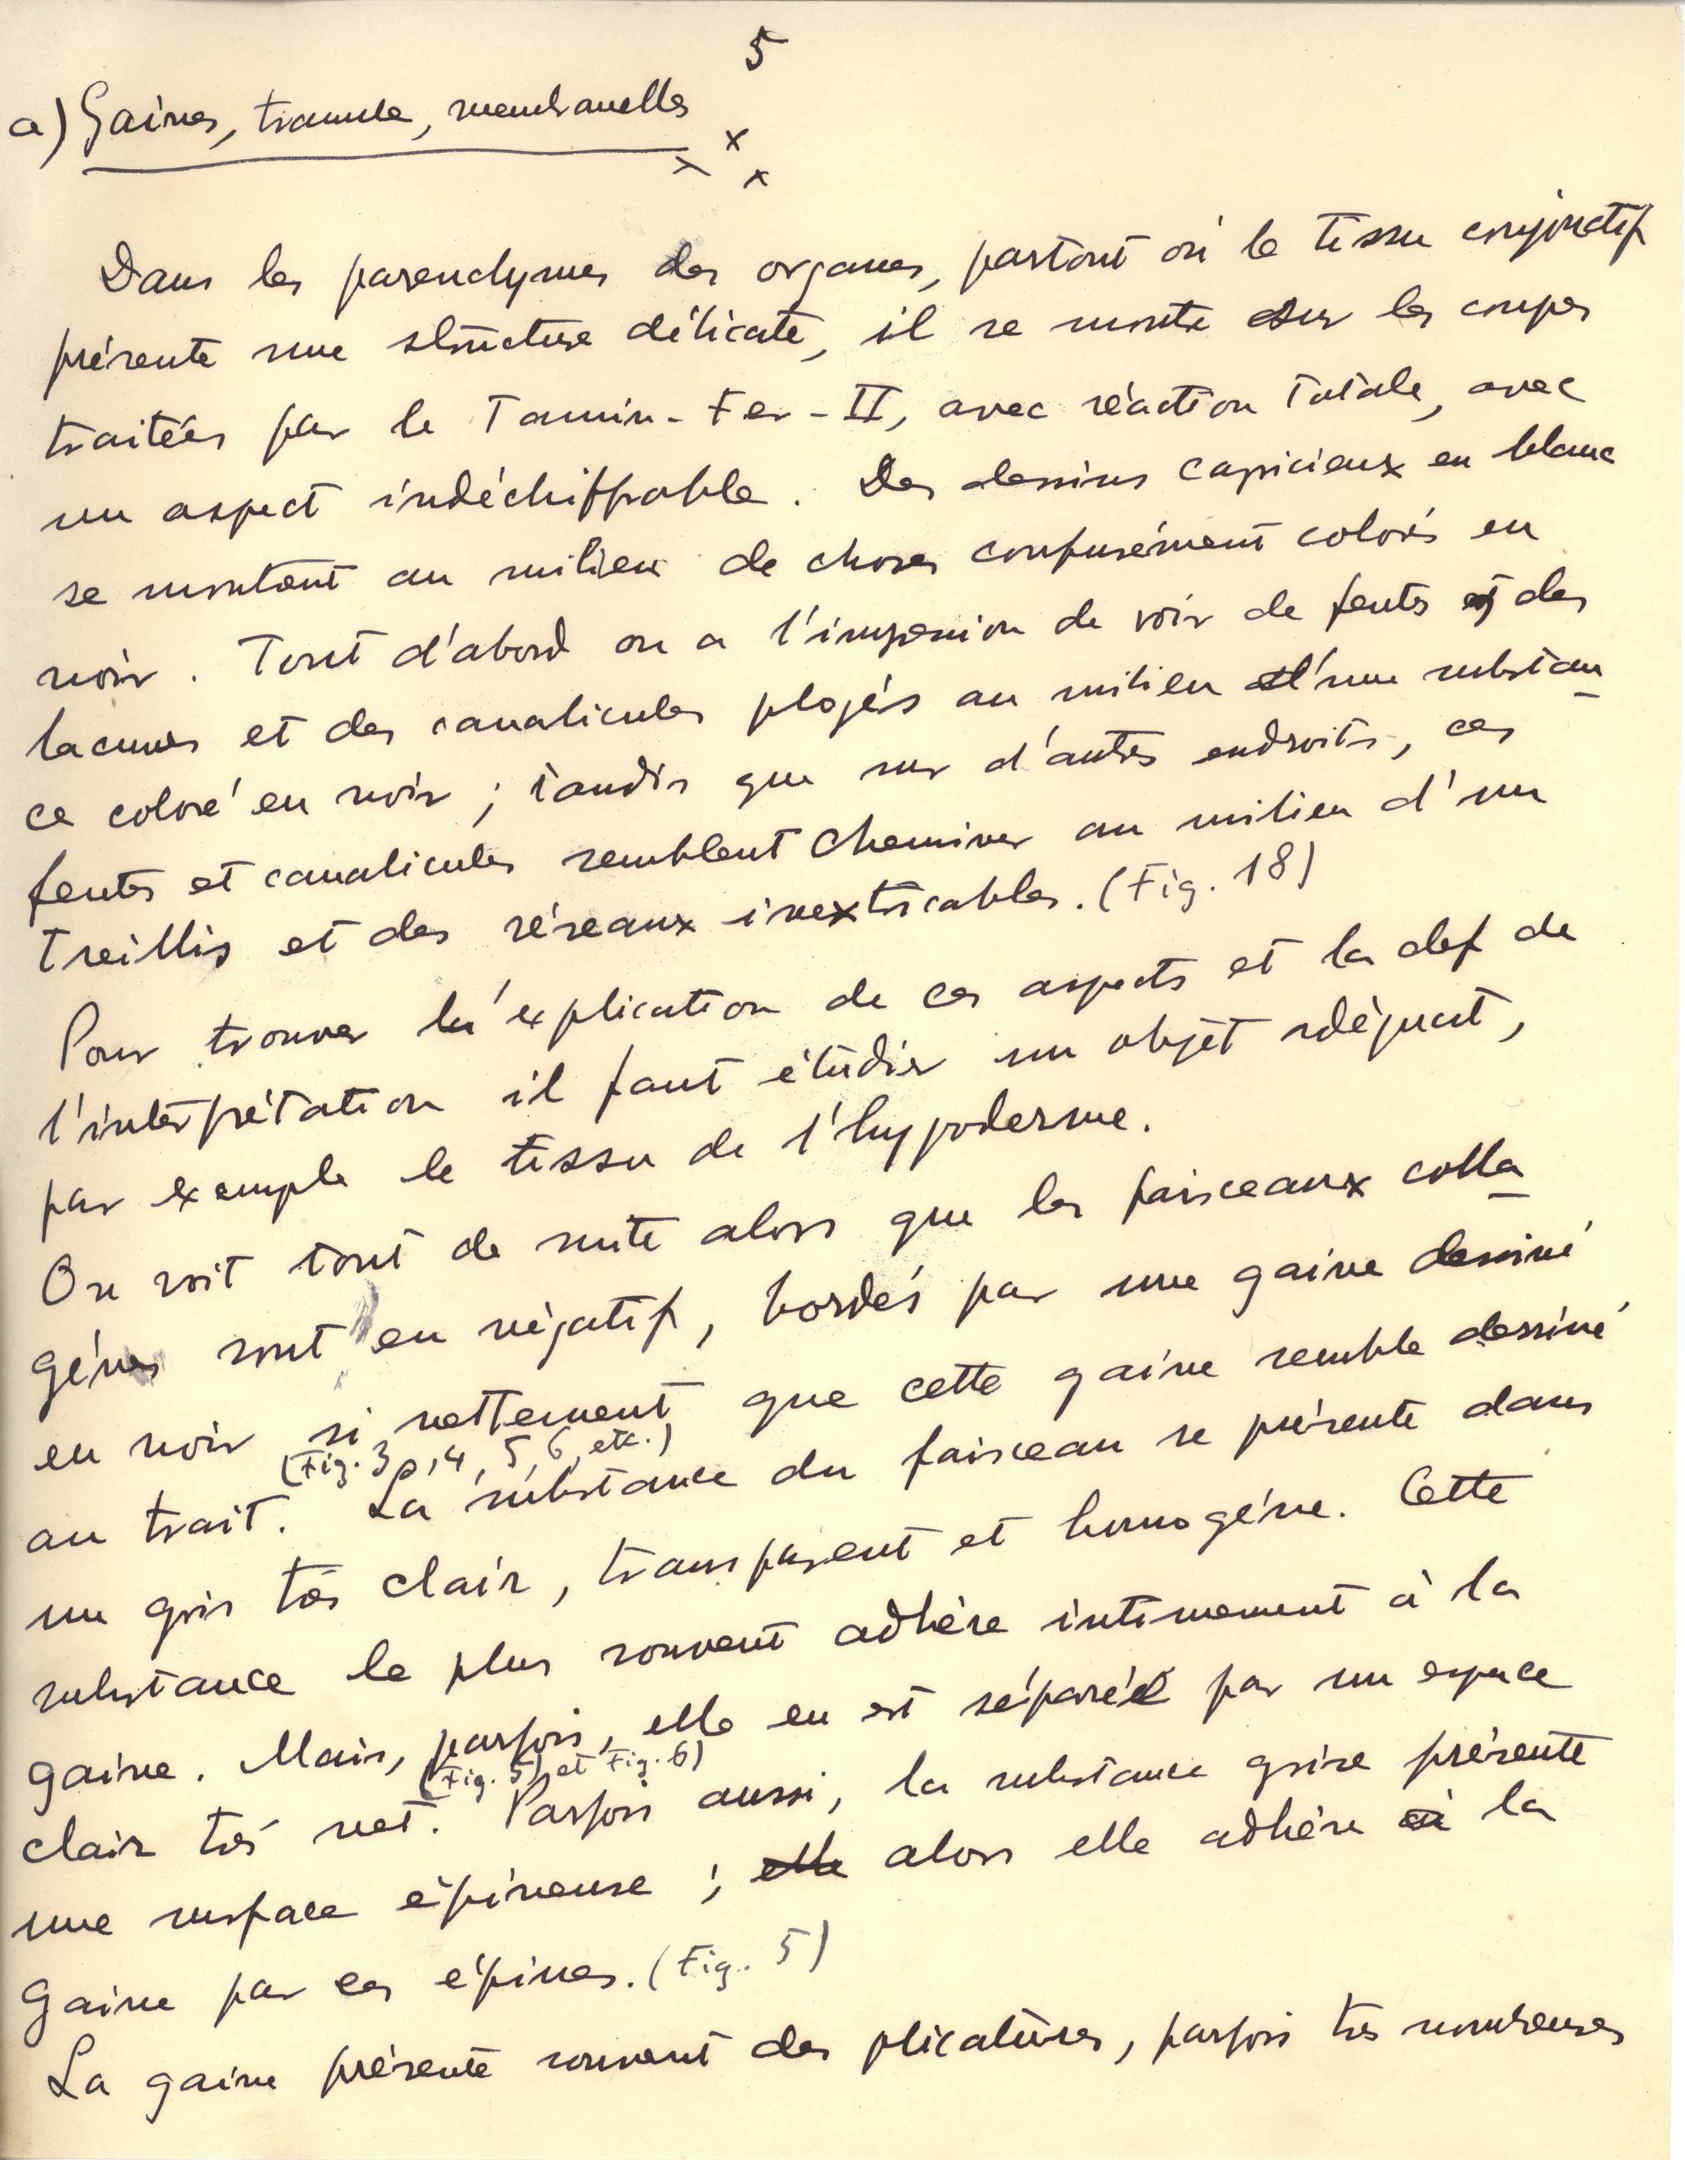 5
a) Gaines, tramule, membranelles
x x x
Dans les parenchymes des organes, partout où le tissu conjonctif
présente une structure délicate, il se montre sur les coupes
traitées par le Tannin-Fer-II, avec réaction totale, avec
un aspect indéchiffrable. Des dessins capricieux en blanc
se montrent au milieu de choses confusément colorés en
noir. Tout d'abord on a l'impression de voir de fentes et des
lacunes et des canalicules plogés au milieu d'une substan
ce coloré en noir ; tandis que sur d'autres endroits, ces
fentes et canalicules semblent cheminer au milieu d'un
treillis et des réseaux inextricables. (Fig. 18)
Pour trouver la explication de ces aspects et la clef de
l'interprétation il faut étudier un objet adéquat,
par exemple le tissu de l'hypoderme.
On voit tout de suite alors que les faisceaux colla
génes sont en négatif, bordés par une gaine dessiné
en noir si nettement que cette gaine semble dessiné
(Fig. 3, 4, 5, 6, etc.)
au trait. La substance du faisceau se présente dans
un gris très clair, transparent et homogène. Cette
substance le plus souvent adhère intimement à la
gaine. Mais, parfois, elle en est séparée par un espace
(Fig. 5) et Fig. 6)
clair très net. Parfois aussi, la substance grise présente
une surface épineuse ; elle alors elle adhére à la
gaine par ces épines. (Fig. 5)
La gaine présente souvent des plicatures, parfois très nombreuses